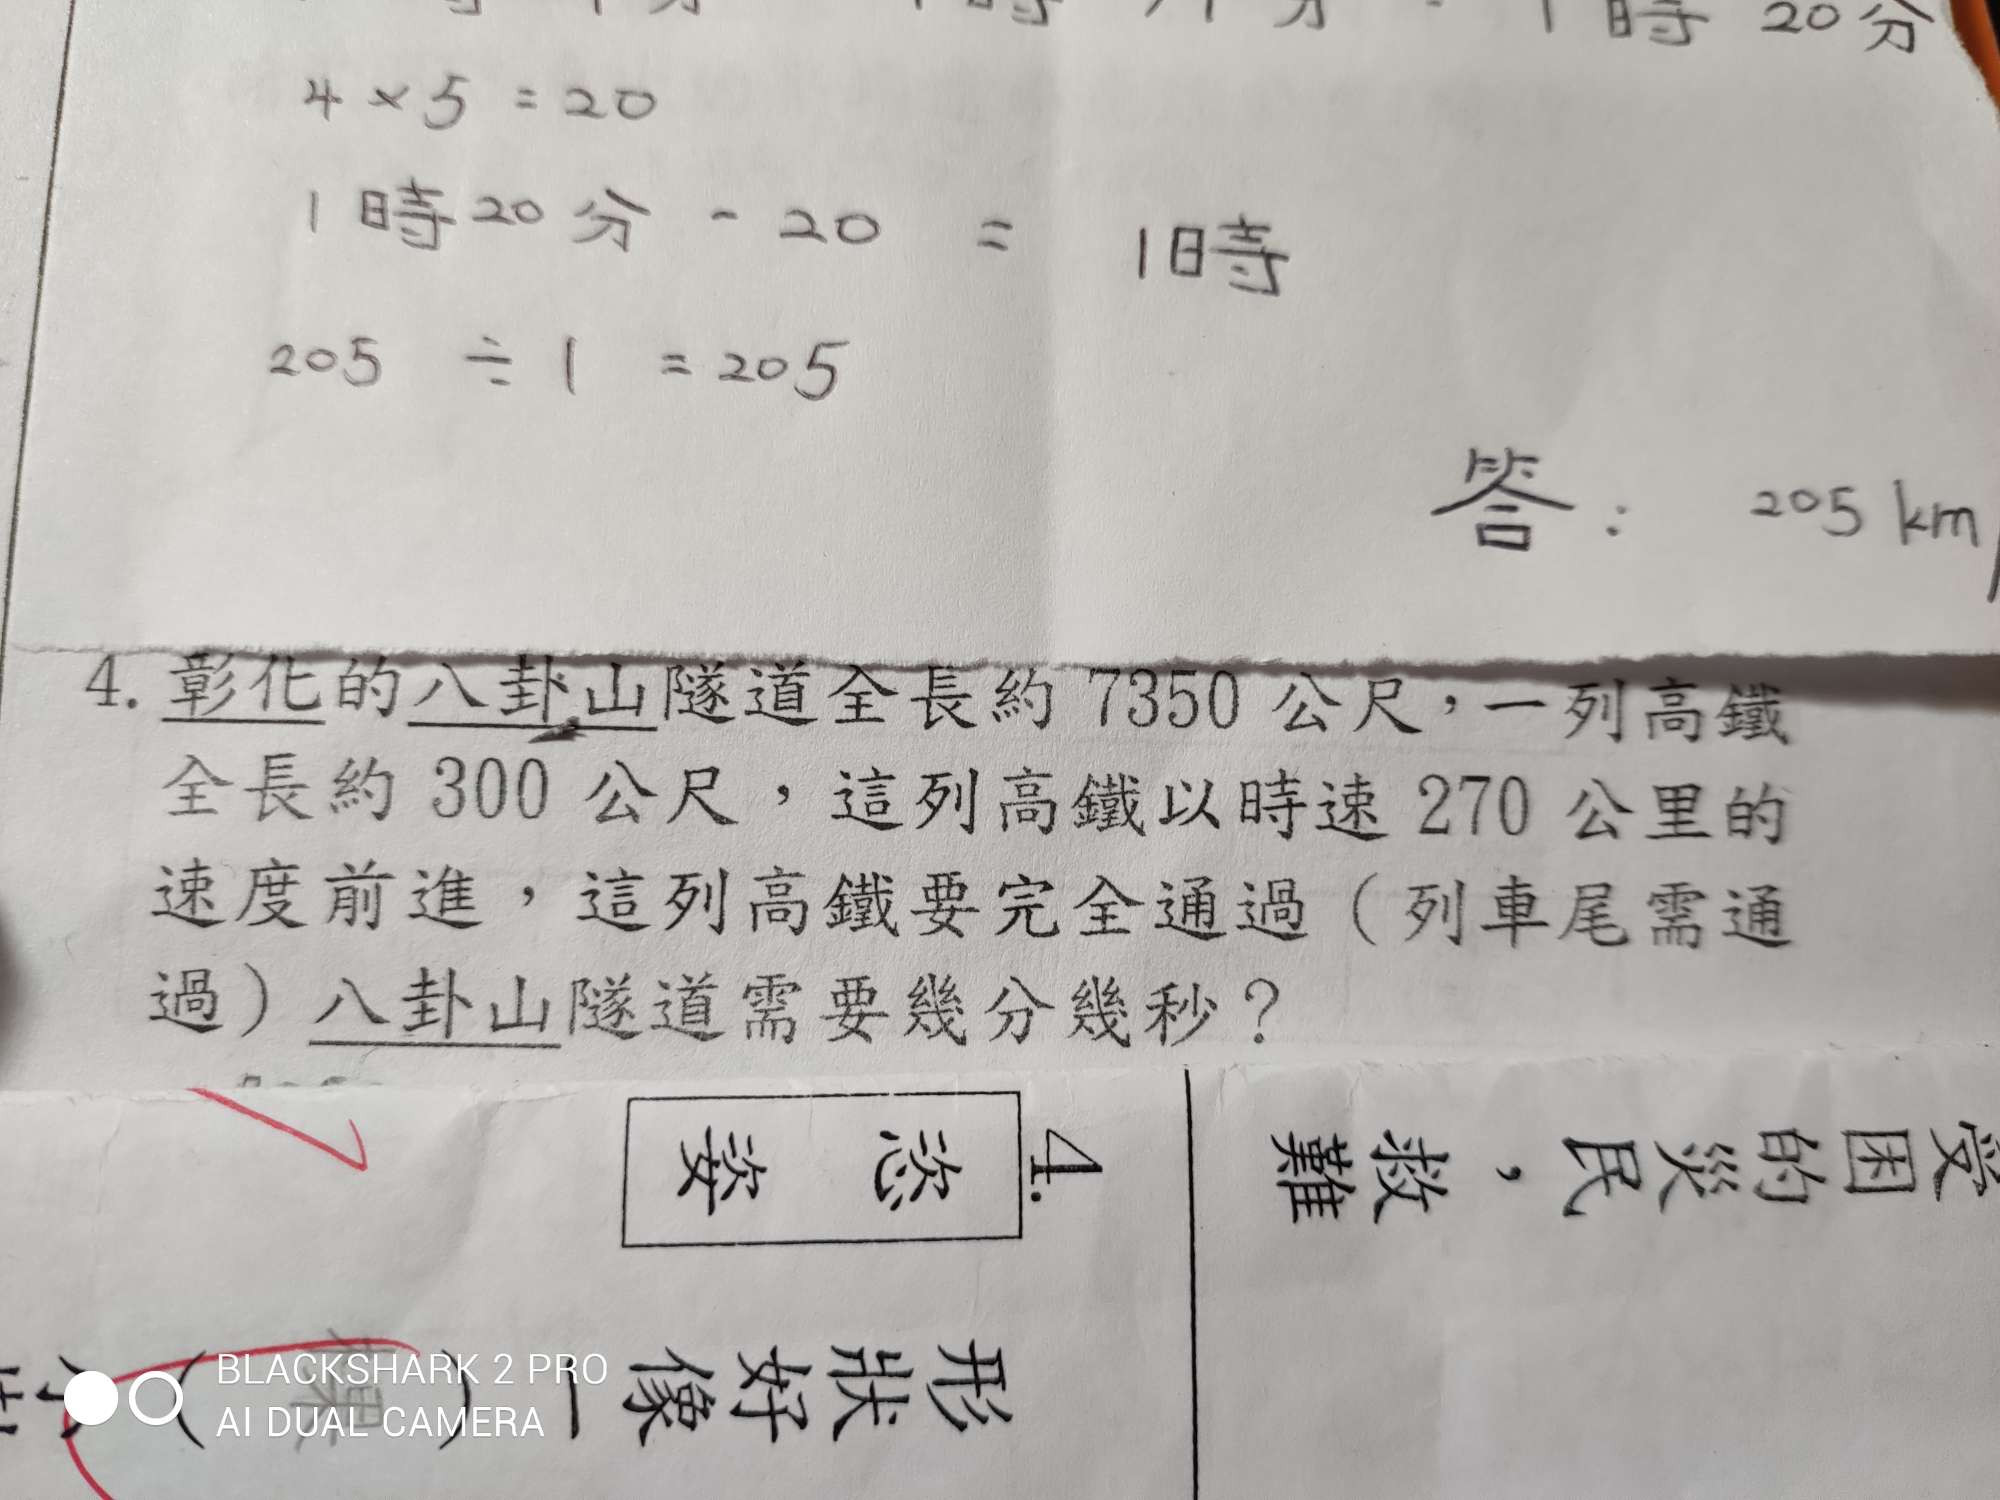 1時20分
4 × 5 = 20
1時20分 - 20 = 1時
205 ÷ 1 = 205
答： 205 km
4. 彰化的八卦山隧道全長約 7350 公尺，一列高鐵
全長約 300 公尺，這列高鐵以時速 270 公里的
速度前進，這列高鐵要完全通過（列車尾需通
過）八卦山隧道需要幾分幾秒？
受困的災民，救難
4.
恣 姿
形狀好像一(
BLACKSHARK 2 PRO
AI DUAL CAMERA